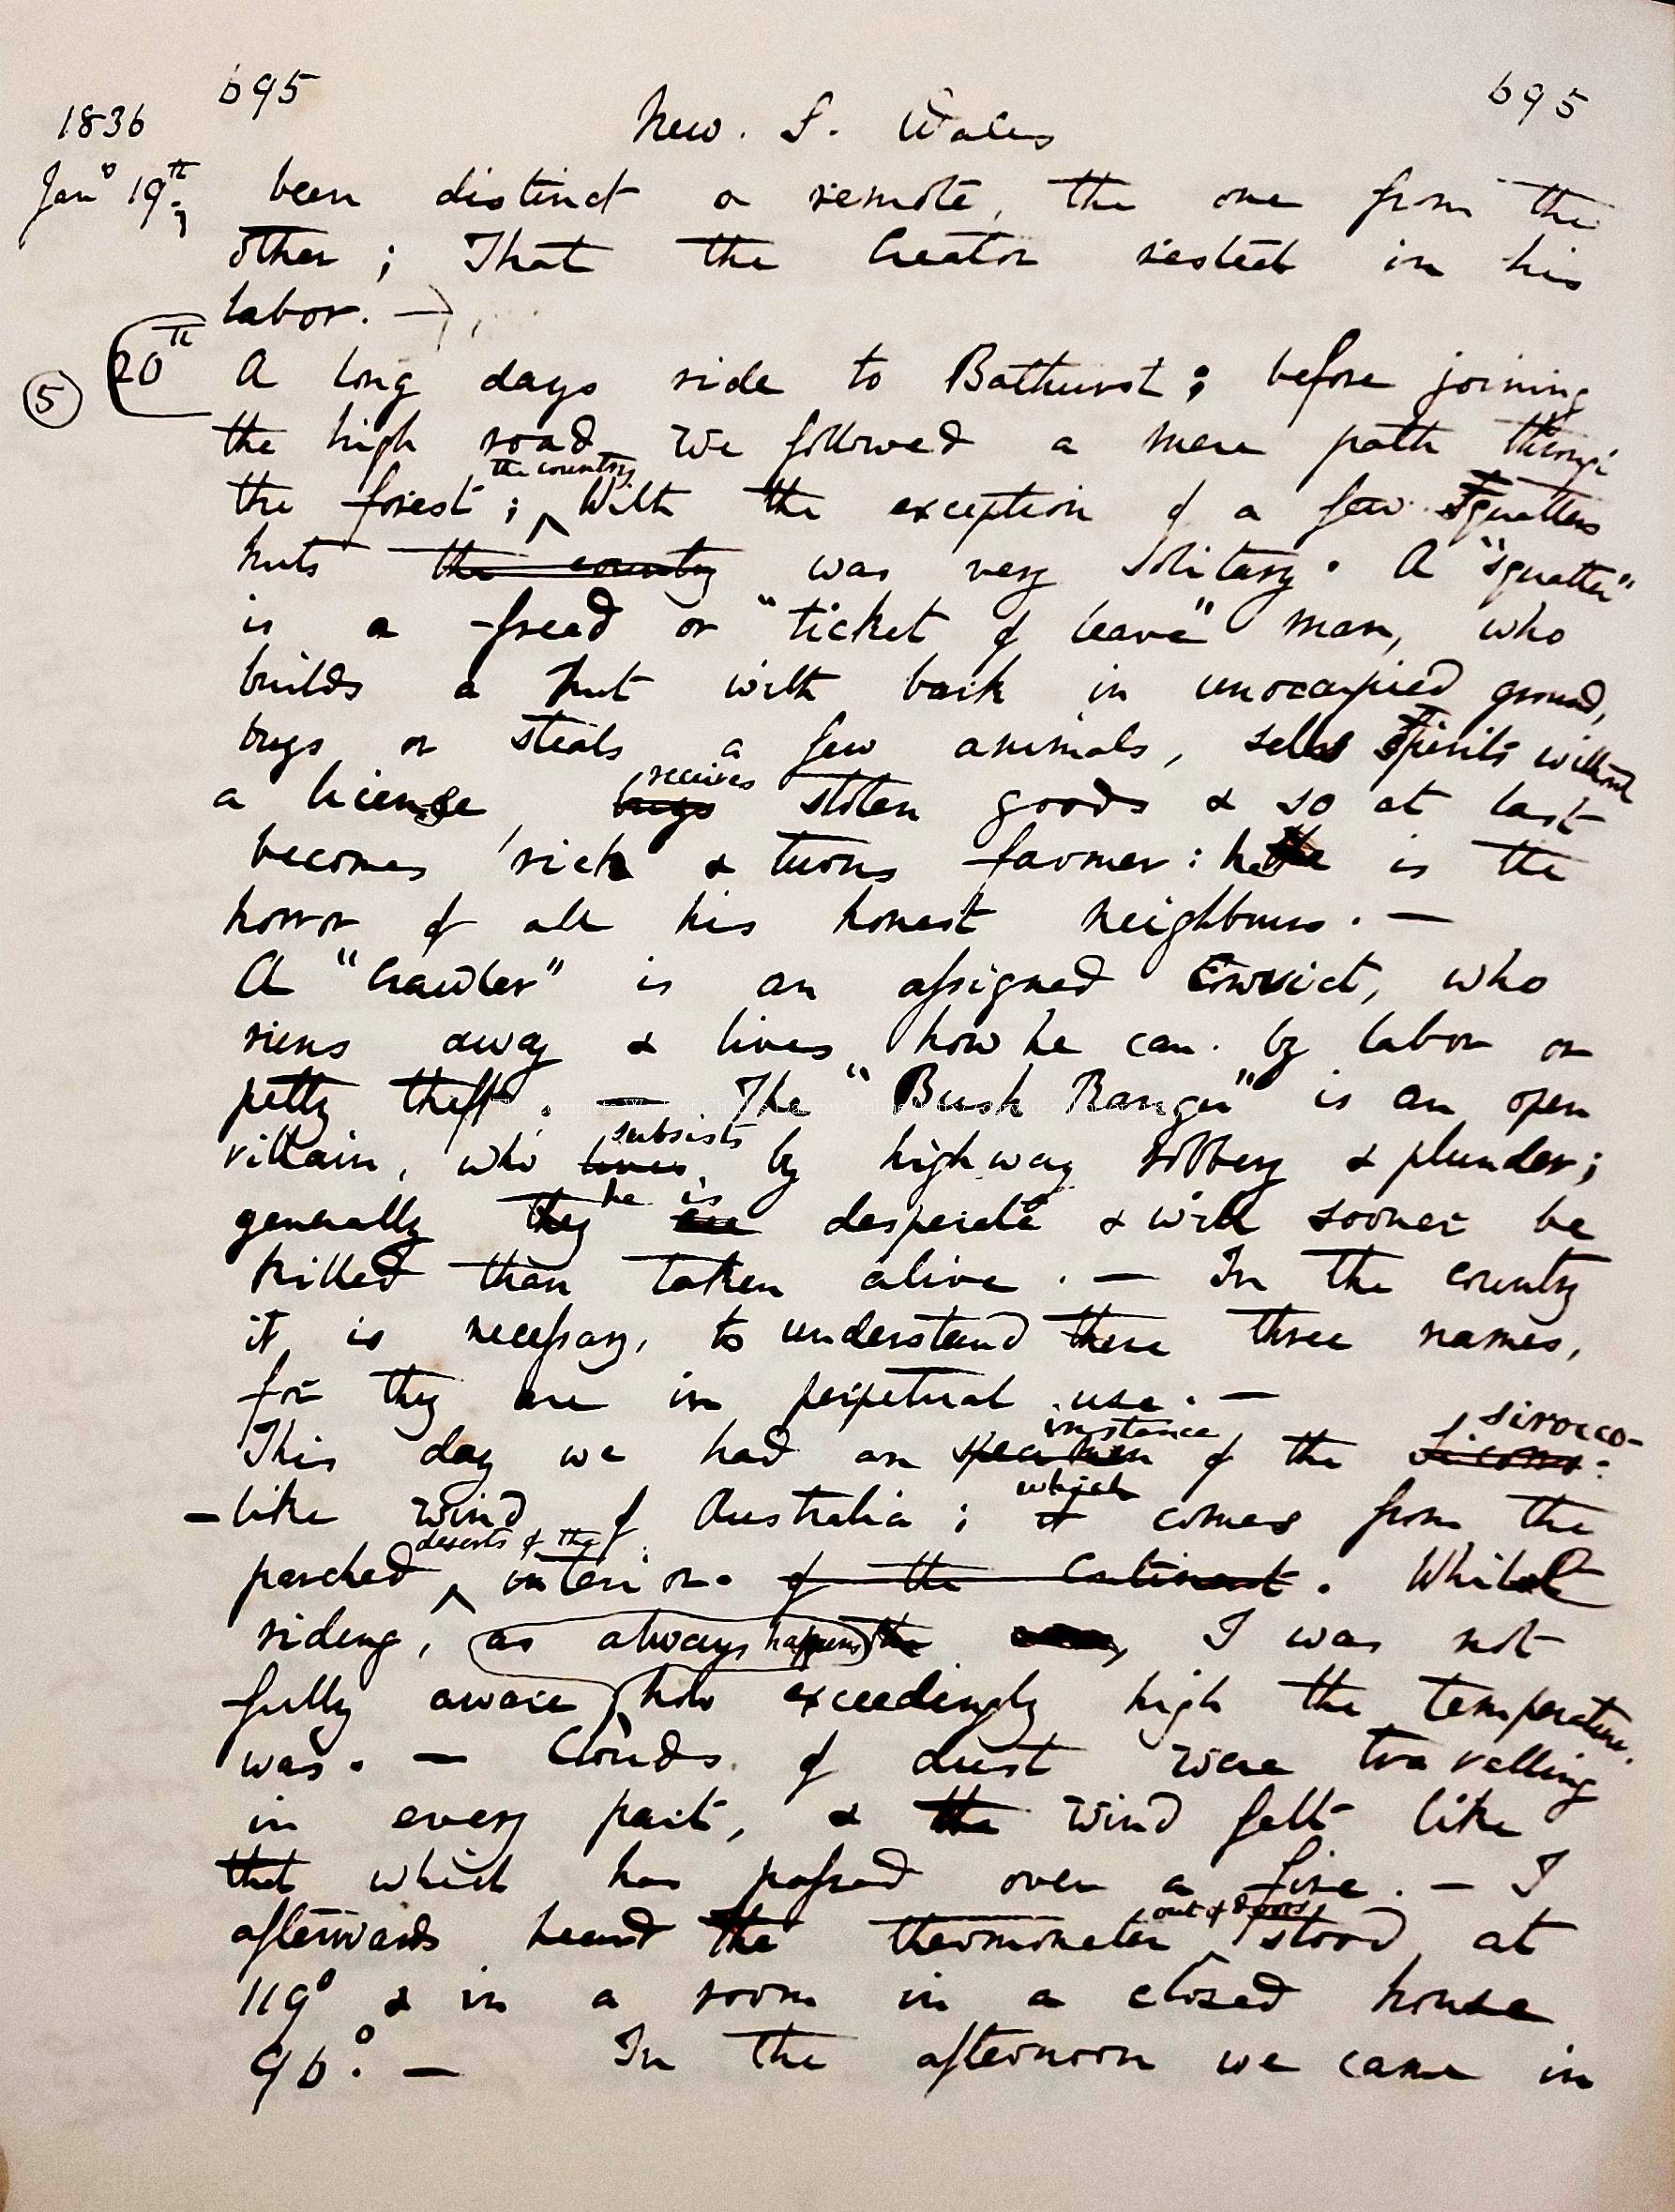 695 695
1836 New. S. Wales
Jan 19th been distinct & remote, the one from the
other; That the Creator rested in his
labor. —
⑤ 20th A long days ride to Bathurst; before joining
the high road we followed a mere path through
the forest; ^the country With the exception of a few Squatters
huts ~~the country~~ was very solitary. A "squatter"
is a freed or "ticket of leave" man, who
builds a hut with bark in unoccupied ground,
buys or steals a few animals, sells Spirits without
a license ~~buys~~ receives stolen goods & so at last
becomes rich & turns farmer: he ~~the~~ is the
horror of all his honest neighbours. —
A "Crawler" is an assigned Convict, who
runs away & lives how he can by labor or
petty theft. — The "Bush Ranger" is an open
villain, who ~~lives~~ subsists by highway robbery & plunder;
generally ~~they~~ he ~~are~~ is desperate & will sooner be
killed than taken alive. — In the country
it is necessary, to understand these three names,
for they are in perpetual use. —
This day we had an ~~specimen~~ instance of the ~~Sirocco~~ sirocco-
-like wind of Australia; ~~it~~ which comes from the
parched ^deserts of the interior. ~~of the Continent~~. Whilst
riding, as always happens ~~the~~ I was not
fully aware how exceedingly high the temperature
was. — Clouds of dust were travelling
in every part, & the wind felt like
that which has passed over a fire. — I
afterwards heard the thermometer ^out of doors stood at
119° & in a room in a closed house
96°. — In the afternoon we came in